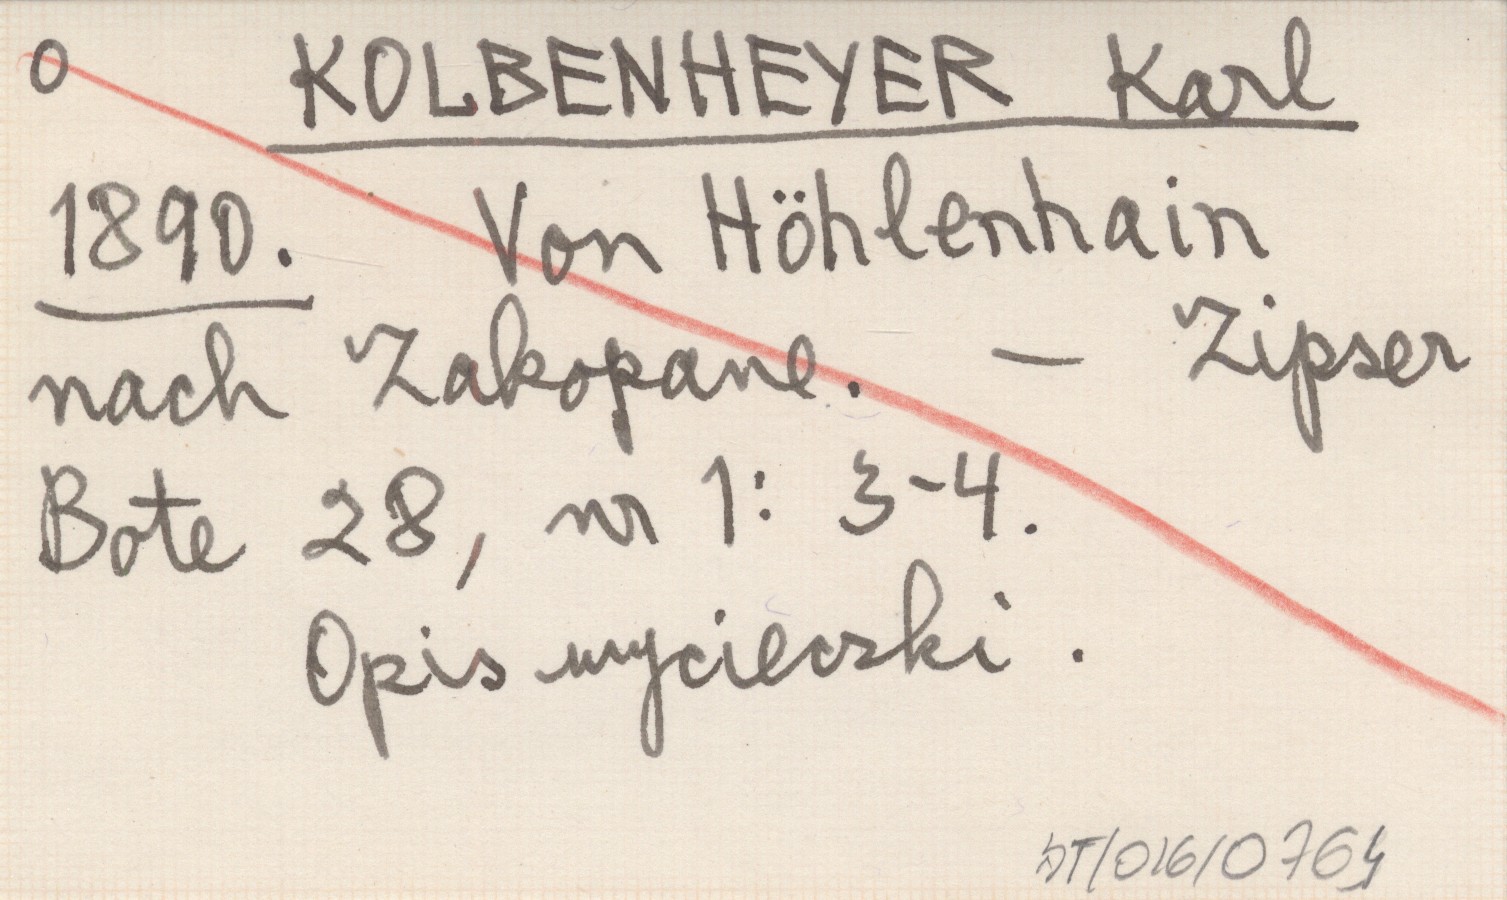 O KOLBENHEYER Karl
1890. Von Höhlenhain
nach Zakopane. — Zipser
Bote 28, nr 1: 3-4.
Opis wycieczki.
DT/016/0764